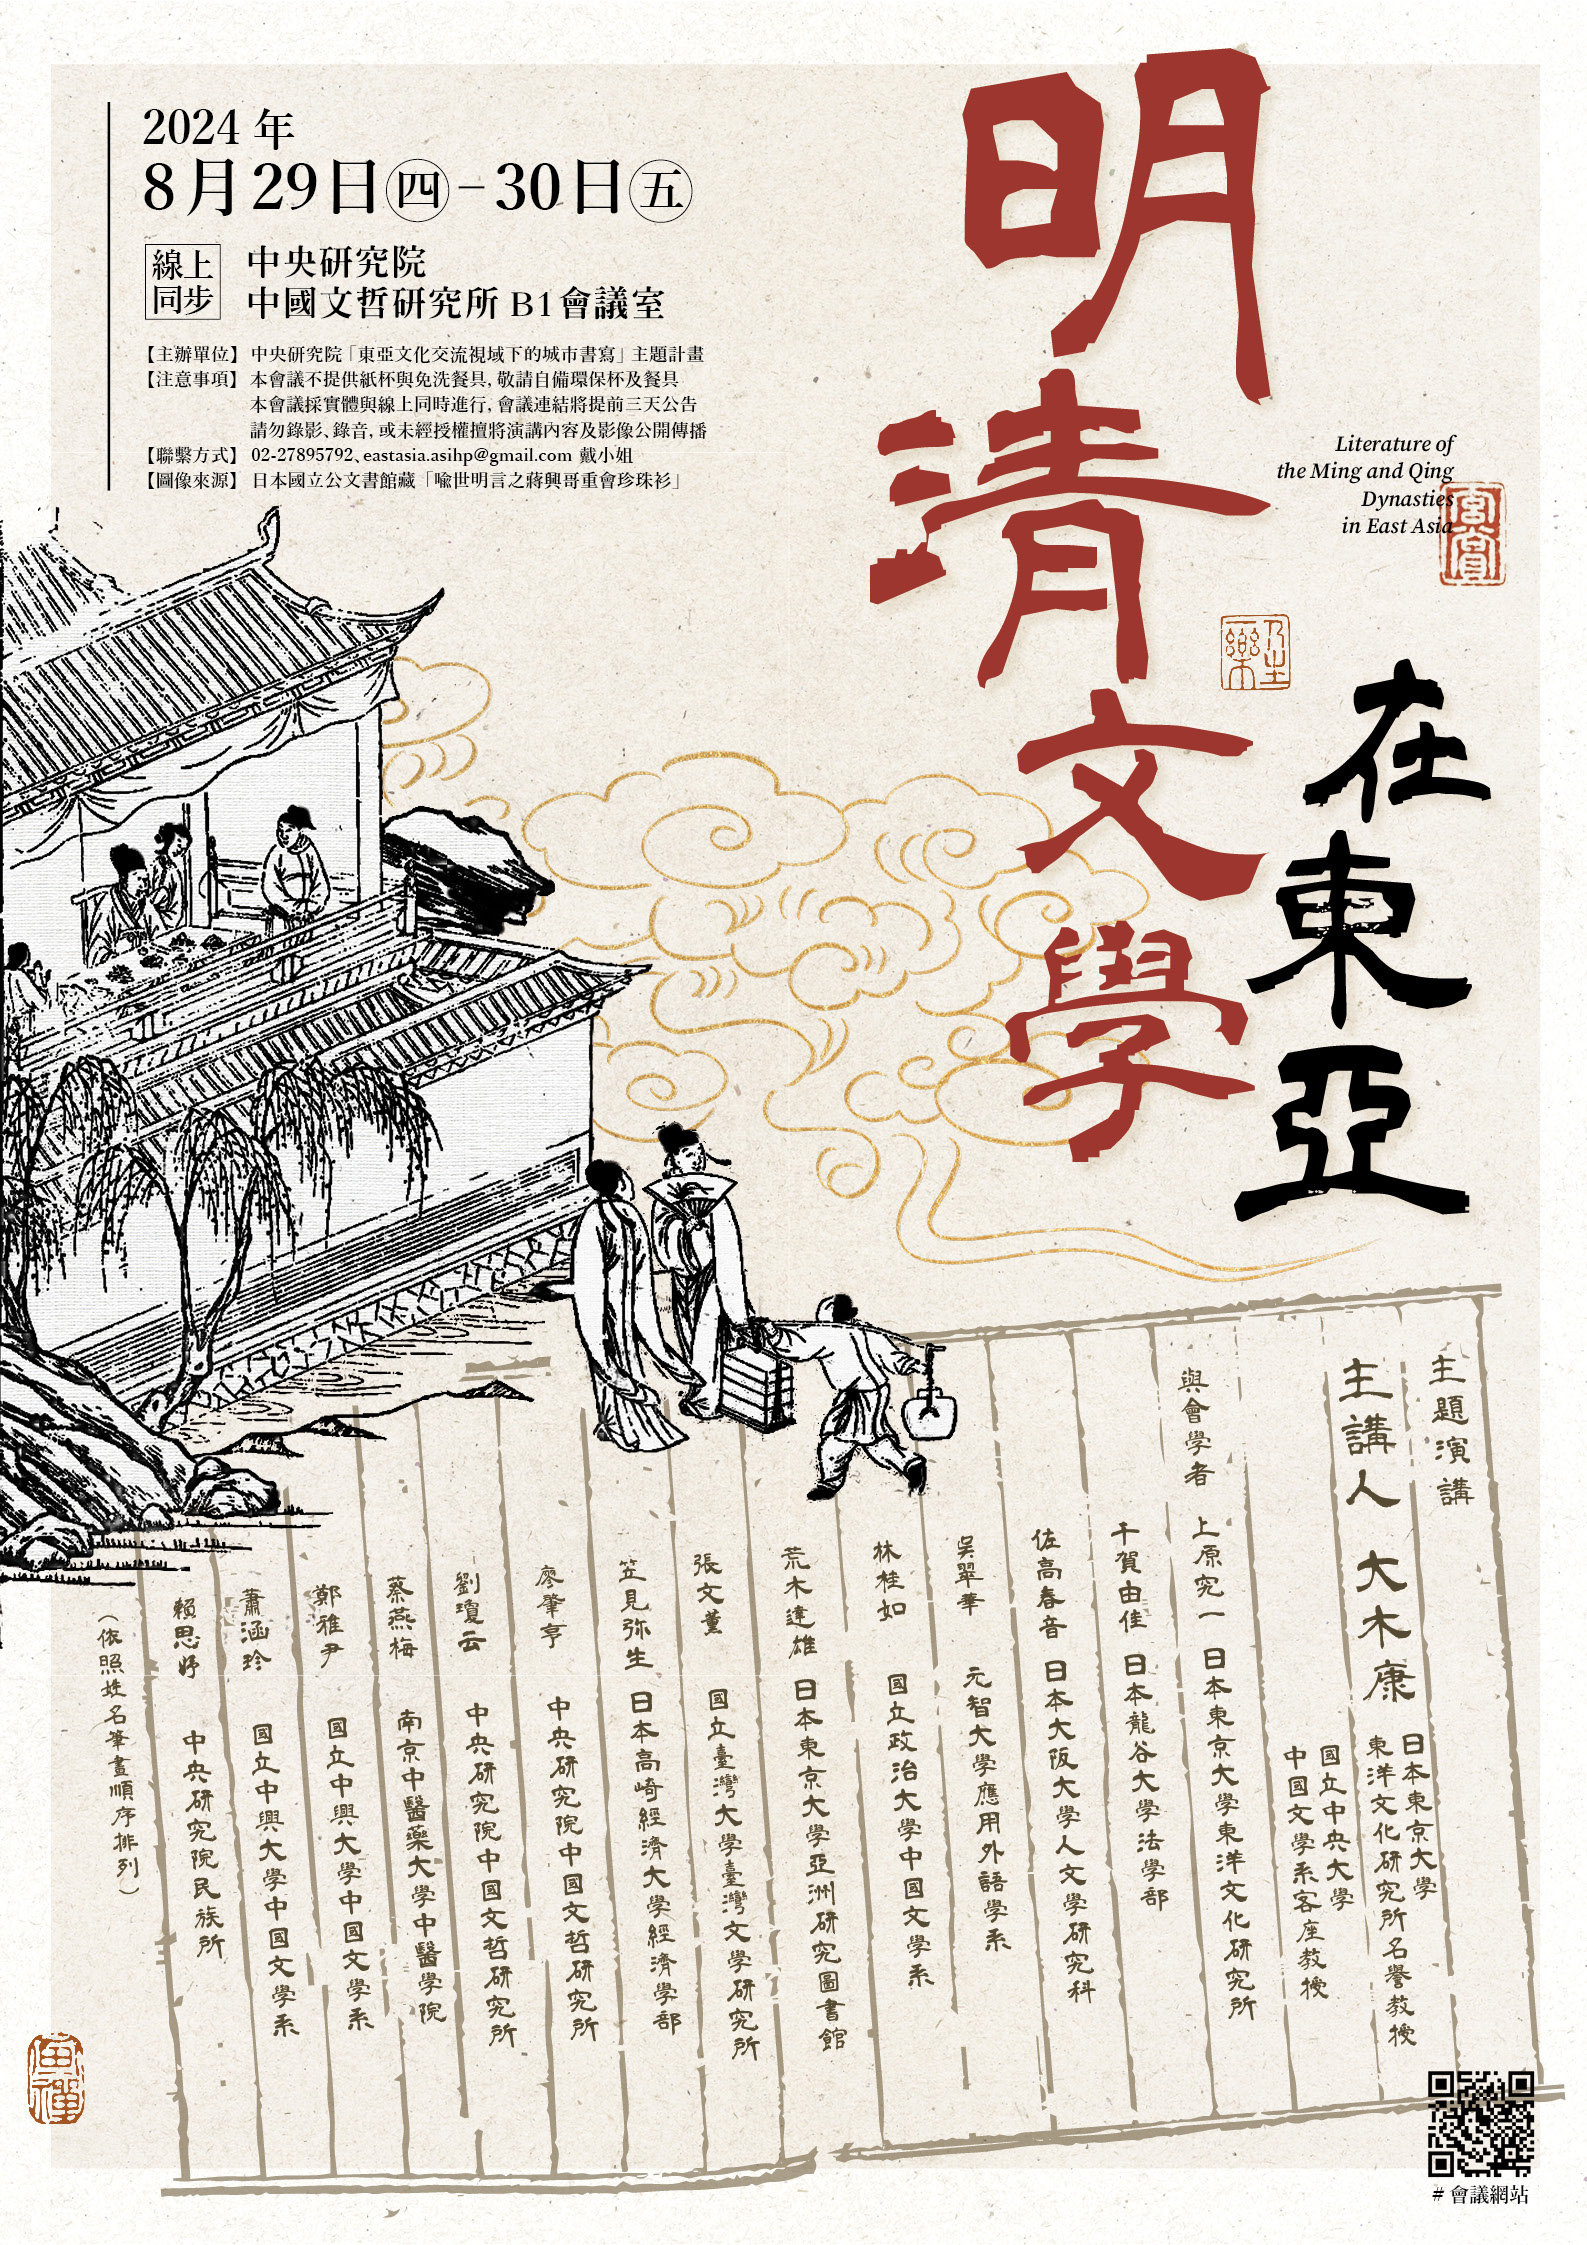 2024 年
8月29日㊃–30日㊄
線上
同步
中央研究院
中國文哲研究所 B1會議室
【主辦單位】 中央研究院「東亞文化交流視域下的城市書寫」主題計畫
【注意事項】 本會議不提供紙杯與免洗餐具, 敬請自備環保杯及餐具
本會議採實體與線上同時進行, 會議連結將提前三天公告
請勿錄影、錄音, 或未經授權擅將演講內容及影像公開傳播
【聯繫方式】 02-27895792、eastasia.asihp@gmail.com 戴小姐
【圖像來源】 日本國立公文書館藏「喻世明言之蔣興哥重會珍珠衫」
明清文學
在東亞
Literature of
the Ming and Qing
Dynasties
in East Asia
主題演講
主講人 大木康
日本東京大學
東洋文化研究所名譽教授
國立中央大學
中國文學系客座教授
與會學者
上原究一 日本東京大學東洋文化研究所
千賀由佳 日本龍谷大學法學部
佐高春音 日本大阪大學人文學研究科
吳翠華 元智大學應用外語學系
林桂如 國立政治大學中國文學系
荒木達雄 日本東京大學亞洲研究圖書館
張文薰 國立臺灣大學臺灣文學研究所
笠見弥生 日本高崎經濟大學經濟學部
廖肇亨 中央研究院中國文哲研究所
劉瓊云 中央研究院中國文哲研究所
蔡燕梅 南京中醫藥大學中醫學院
鄭雅尹 國立中興大學中國文學系
蕭涵珍 國立中興大學中國文學系
賴思妤 中央研究院民族所
（依照姓名筆畫順序排列）
# 會議網站